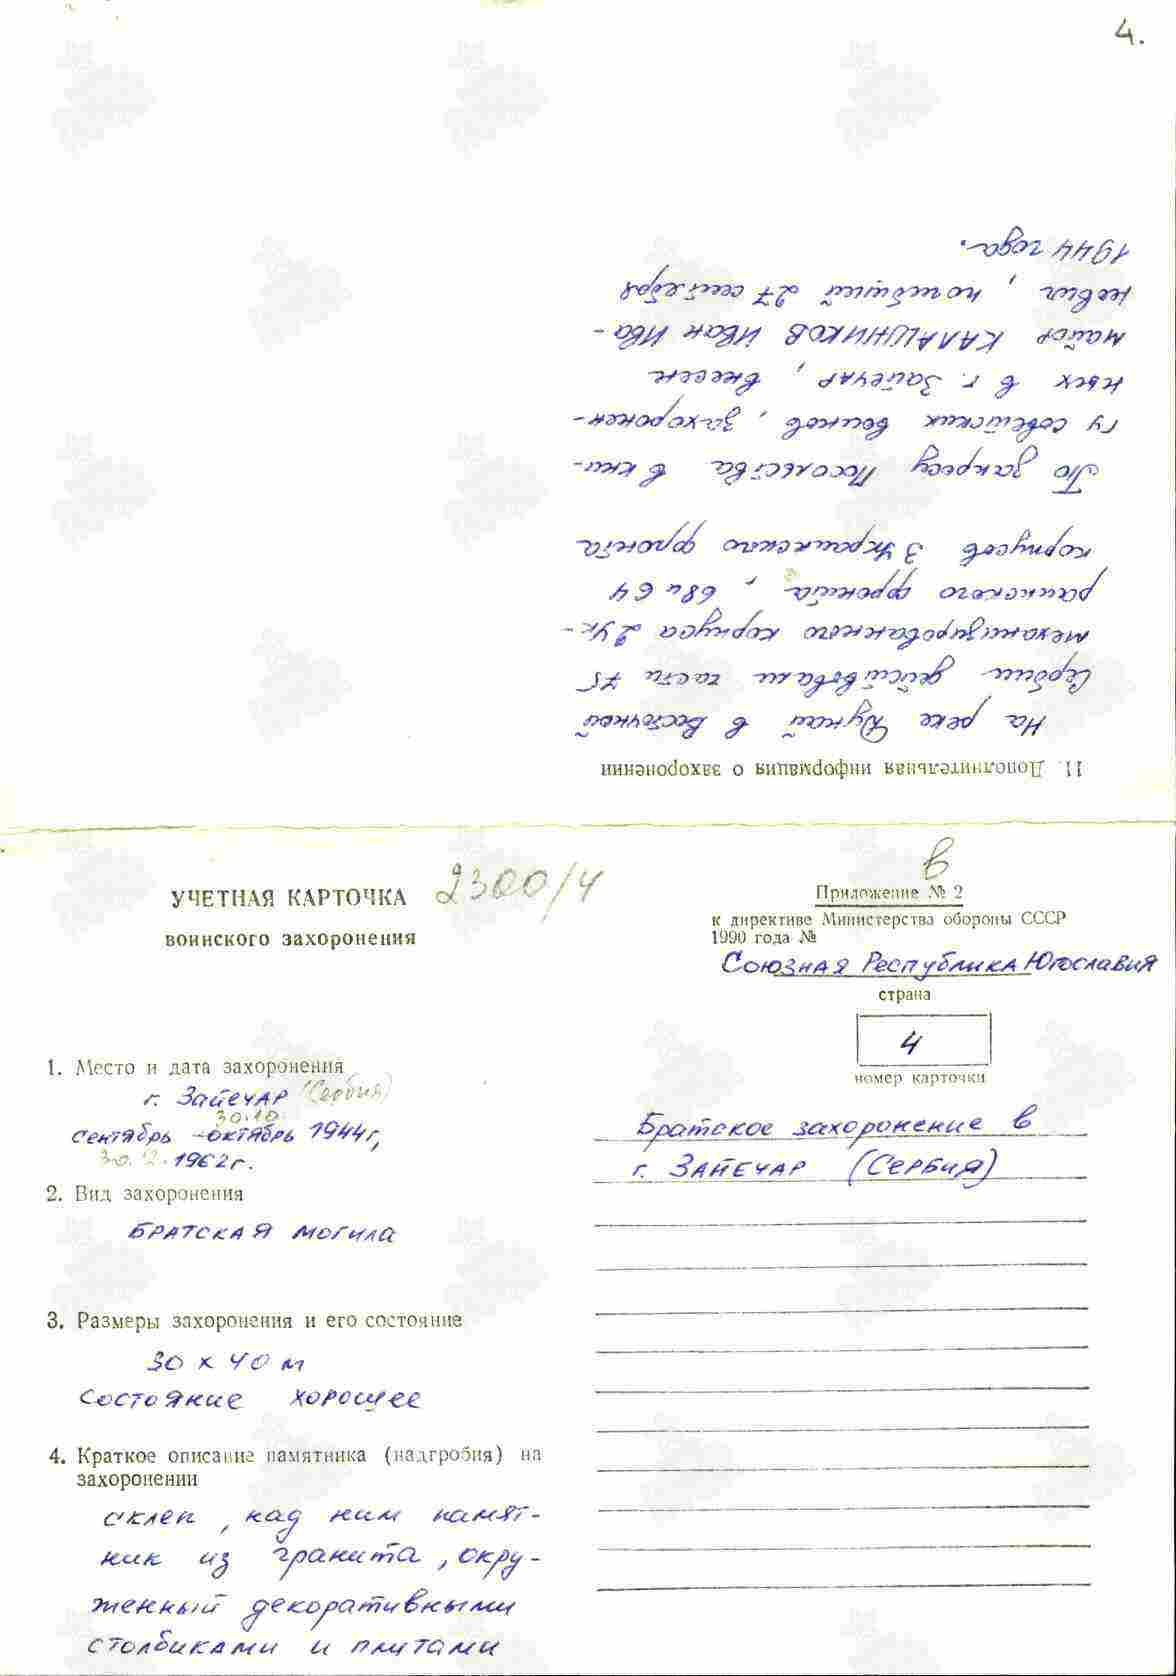 4.
11. Дополнительная информация о захоронении
На реке Дунай в Восточной
Сербии действовали части 75
механизированного корпуса 2 Ук-
раинского фронта, 68 и 64
корпусов 3 Украинского фронта
По запросу Посольства в кни-
гу советских воинов, захоронен-
ных в г. Зайечар, внесен
майор КАЛАШНИКОВ Иван Ива-
нович, погибший 27 сентября
1944 года.
УЧЕТНАЯ КАРТОЧКА 2300/4
воинского захоронения
в
Приложение № 2
к директиве Министерства обороны СССР
1990 года №
Союзная Республика Югославия
страна
4
номер карточки
Братское захоронение в
г. Зайечар (Сербия)
1. Место и дата захоронения
г. Зайечар (Сербия)
30.10.
сентябрь - октябрь 1944 г,
30.12.1962 г.
2. Вид захоронения
Братская могила
3. Размеры захоронения и его состояние
30 х 40 м
Состояние хорошее
4. Краткое описание памятника (надгробия) на
захоронении
склеп, над ним памят-
ник из гранита, окру-
женный декоративными
столбиками и плитами